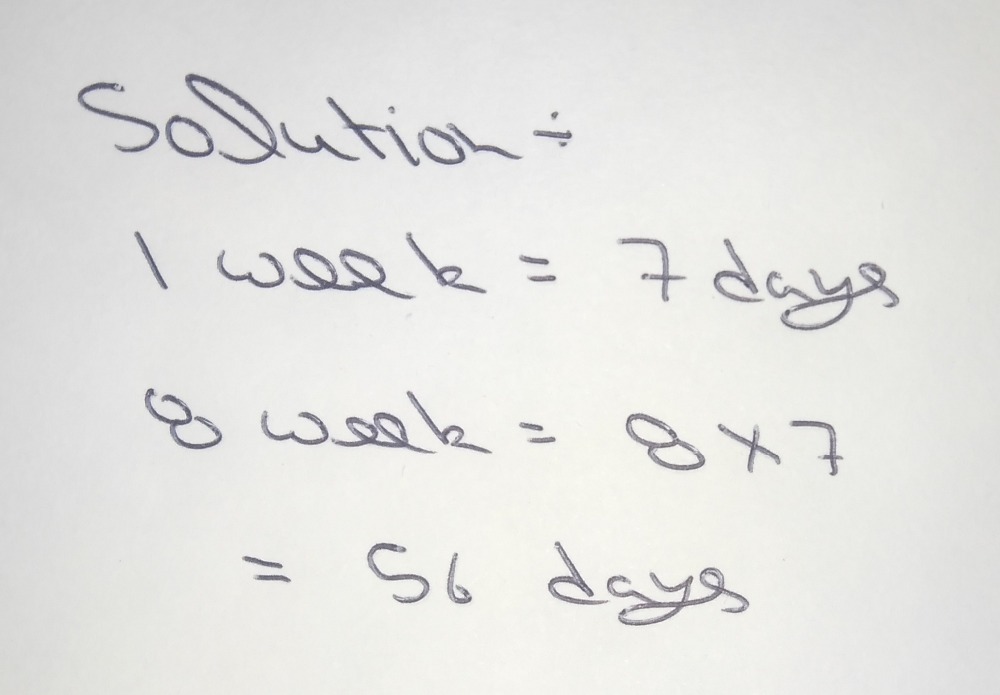 Solution ÷
1 week = 7 days
8 week = 8 × 7
= 56 days